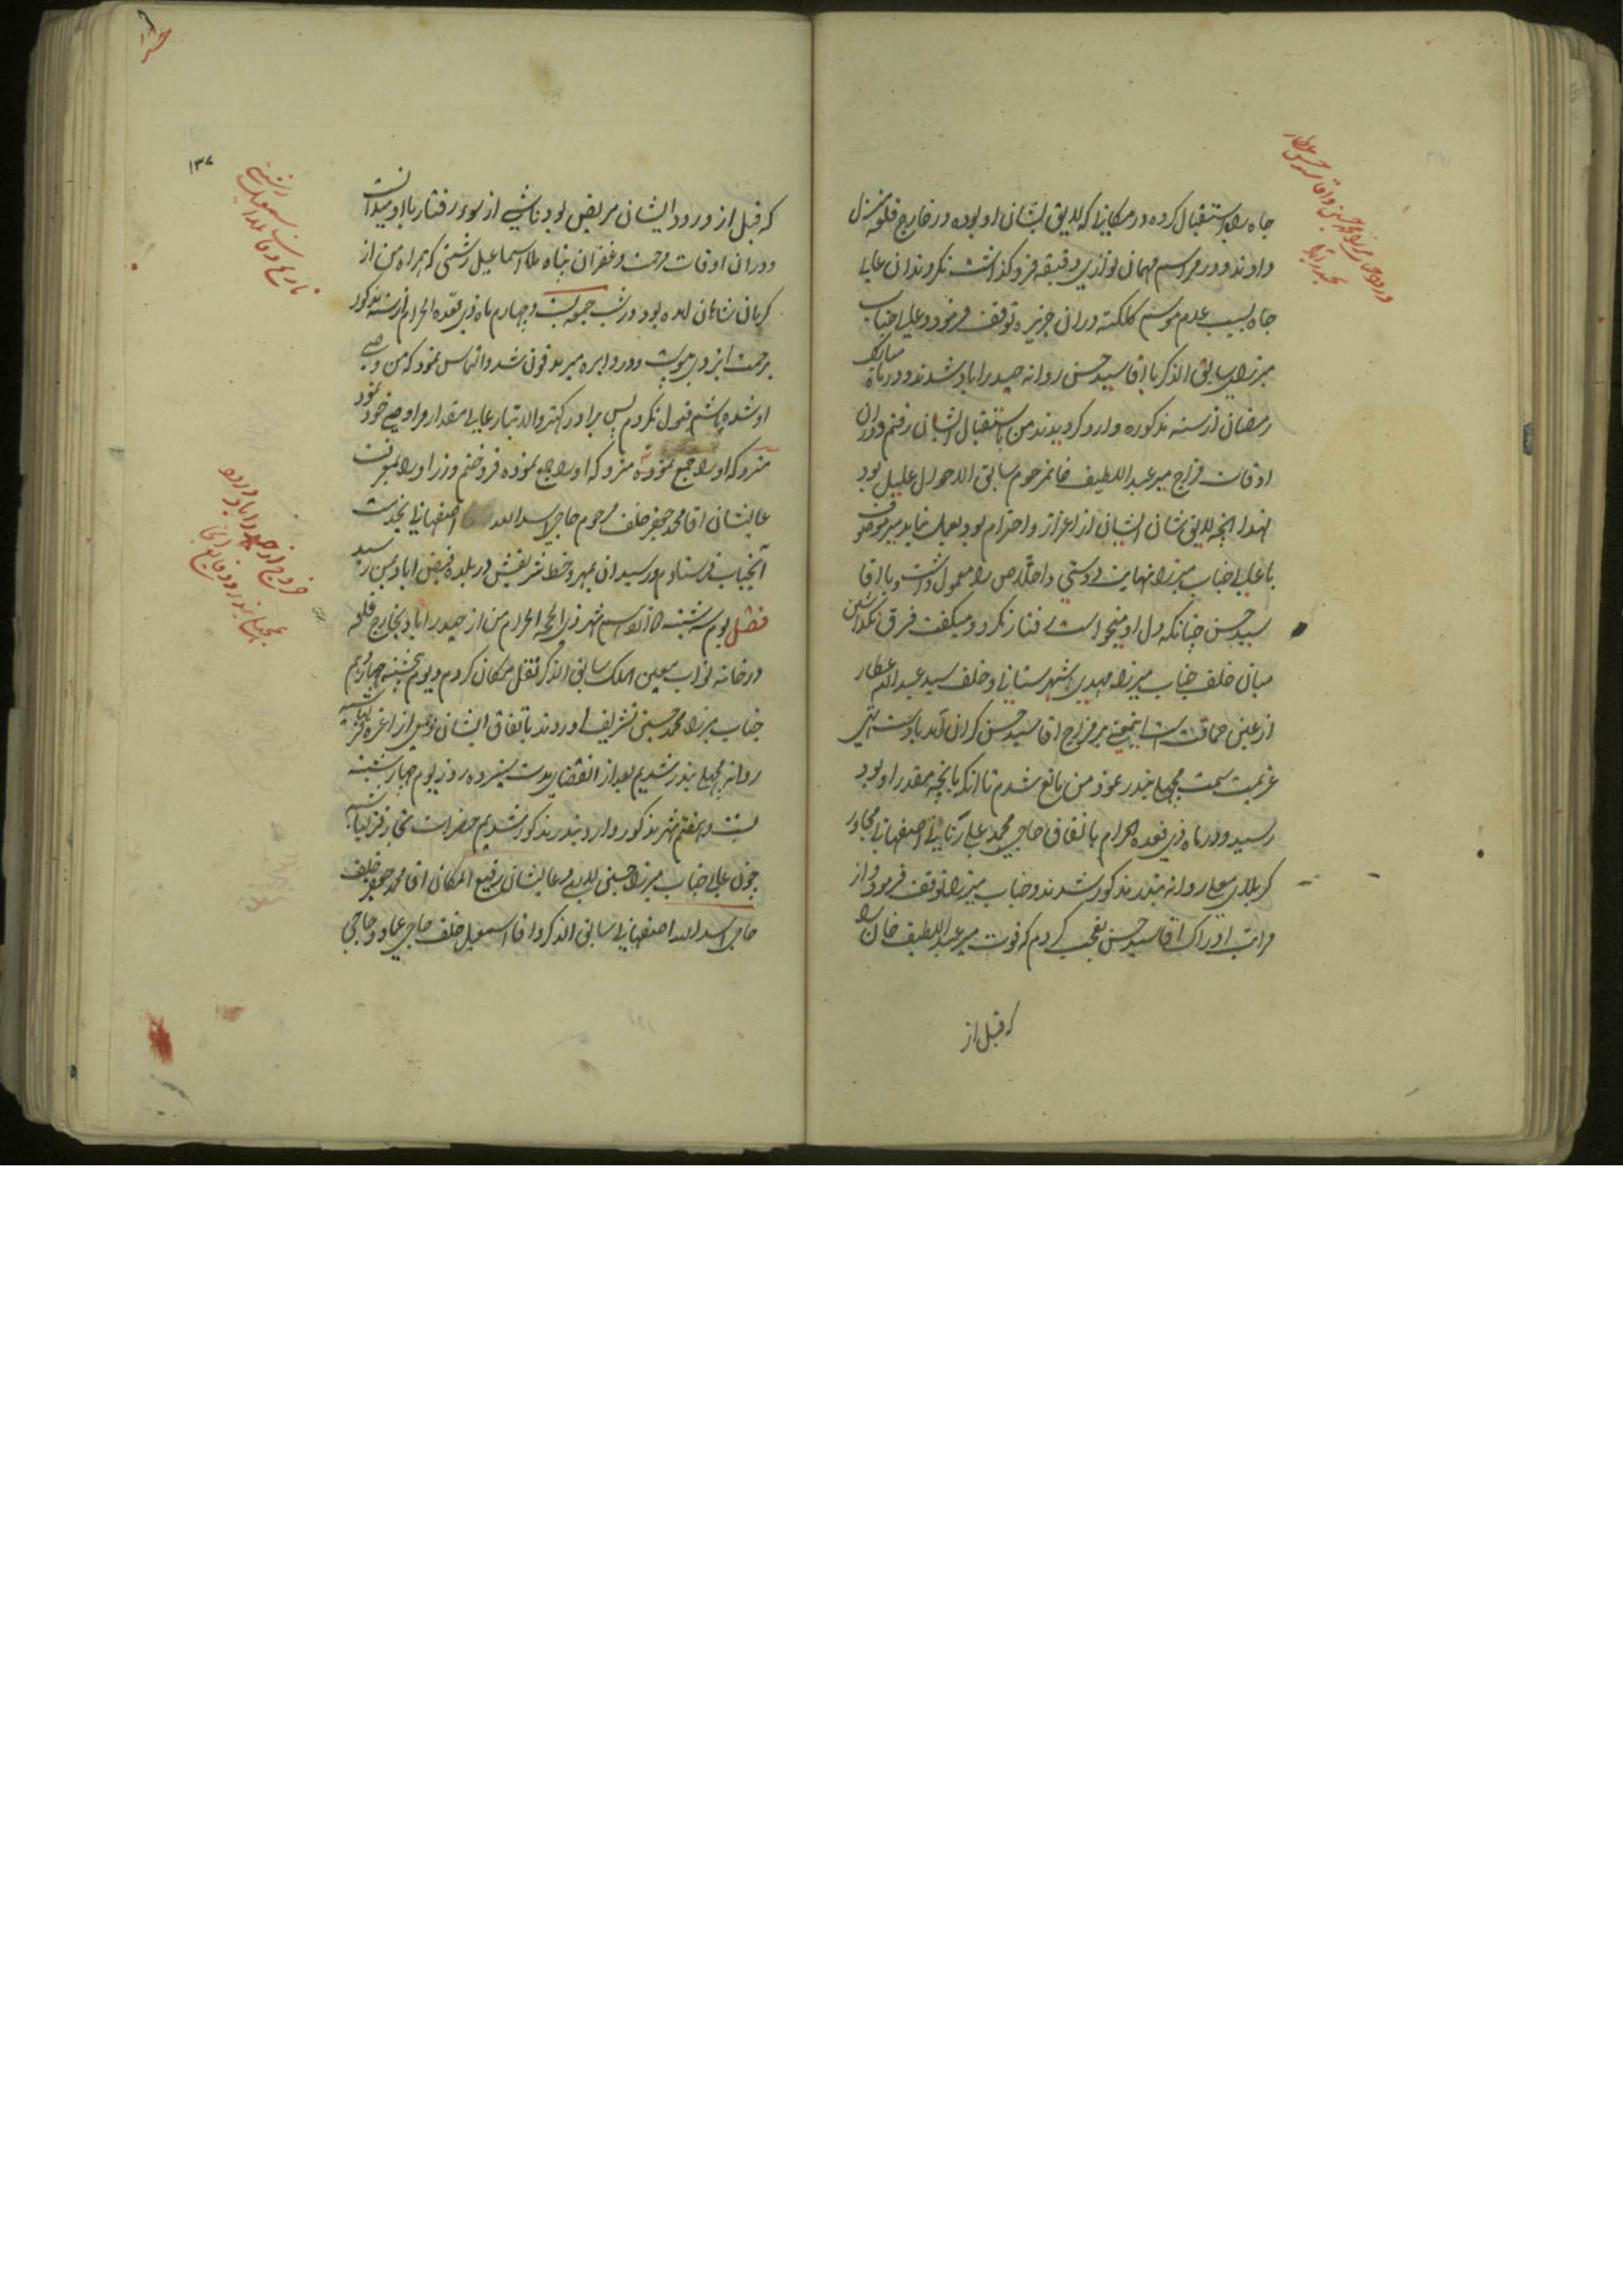 جاه را استقبال کرده در مکانی که لایق بشان او بوده در خارج قلعه منزل
دادند و در مراسم مهمان نوازی دقیقه فرو گذاشت نکردند ان عالی
جاه بسبب عدم موسم کلکته در ان جزیره توقف فرمود و عالی جناب
میرزای سابق الذکر با اقا سید حسن روانه حیدراباد شدند و در ماه مبارک
رمضان از سنه مذکوره وارد گردیدند من باستقبال ایشان رفتم و در ان
اوقات مزاج میر عبد اللطیف خان مرحوم سابق الاحوال علیل بود
لهذا انچه لایق شان ایشان از اعزاز و احترام بود بعمل نیامد میر موصوف
با عالی جناب میرزا نهایت دوستی و اخلاص را معمول داشت و با اقا
سید حسن چنانکه دل او میخواست رفتار نکرد و میگفت فرق نگذاشتن
میان خلف جناب میرزا مهدی شهرستانی و خلف سید عبد الله عطار
از عین حماقت است اینمعنی بر مزاج اقا سید حسن گران آمد
عزیمت سمت مچهلی بندر نمود من مانع شدم تا انکه بانچه مقدر او بود
رسید و در ماه ذی قعده الحرام باتفاق حاجی محمد علی اصفهانی مجاور
کربلای معلی روانه بندر مذکور شدند و جناب میرزا توقف فرمود و از
مراتب ادراک اقا سید حسن تعجب کردم که فوت میر عبد اللطیف خان را
که قبل از
۱۳۷
که قبل از ورود ایشان مریض بود ناشی از سوء رفتار با او میدانست
و در ان اوقات مرحمت و غفران پناه ملا اسماعیل رشتی که همراه من از
کرمان شاهان امده بود در شب جمعه بیست و چهارم ماه ذی قعده الحرام از سنه مذکور
برحمت ایزدی پیوست و در دایره میر مدفون شد و التماس نمود که من وصی
او شده باشم قبول نکردم پس برادر کهتر والا تبار عالی مقدار مرا وصی خود نمود
متروکه او را جمع نموده متروکه او را جمع نموده فروختم و زر او را بمعرفت
عالیشان اقا محمد جعفر خلف مرحوم حاجی اسد الله اصفهانی بخدمت
آنجناب فرستادم و رسید ان بمهر و خط شریفش در بلده فیض اباد بمن رسید
فصل یوم سه شنبه شهر ذی الحجه الحرام من از حیدراباد بخارج قلعه
در خانه نواب معین الملک سابق الذکر نقل مکان کردم و یوم پنجشنبه چهاردهم
جناب میرزا محمد حسین تشریف اوردند باتفاق ایشان و جمعی از اعزه قزلباشیه
روانه مچهلی بندر شدیم بعد از انقضای مدت سیزده روز یوم چهارشنبه
بیست و هفتم شهر مذکور وارد بندر مذکور شدیم حضرات تجار قزلباشیه
چون عالی جناب میرزا حسین و عالیشان رفیع المکان اقا محمد جعفر خلف
حاجی اسد الله اصفهانی سابق الذکر و اقا اسمعیل خلف حاجی عماد و حاجی